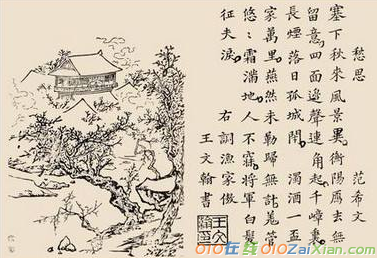 愁思 范希文
塞下秋來風景異衡陽鴈去無
留意四面邊聲連角起千嶂裏
長煙落日孤城閉 濁酒一盃
家萬里燕然未勒歸無計羗管
悠〻霜滿地人不寐將軍白髮
征夫淚 右詞漁家傲
王文翰書
O1O在线 O1OZaiXian.com